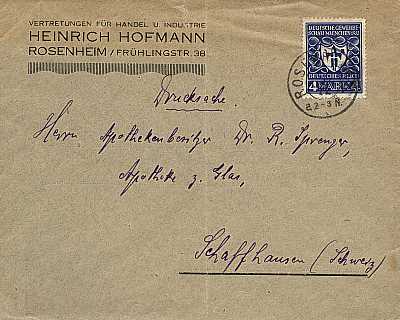 VERTRETUNGEN FÜR HANDEL U. INDUSTRIE
HEINRICH HOFMANN
ROSENHEIM / FRÜHLINGSTR. 38
DEUTSCHE GEWERBE
SCHAU MÜNCHEN 1922
DEUTSCHES REICH
4 MARK 4
ROS
8.2-3 N.
Drucksache.
Herrn Apothekenbesitzer Dr. R. Sprenger,
Apotheke z. Glas,
Schaffhausen (Schweiz)